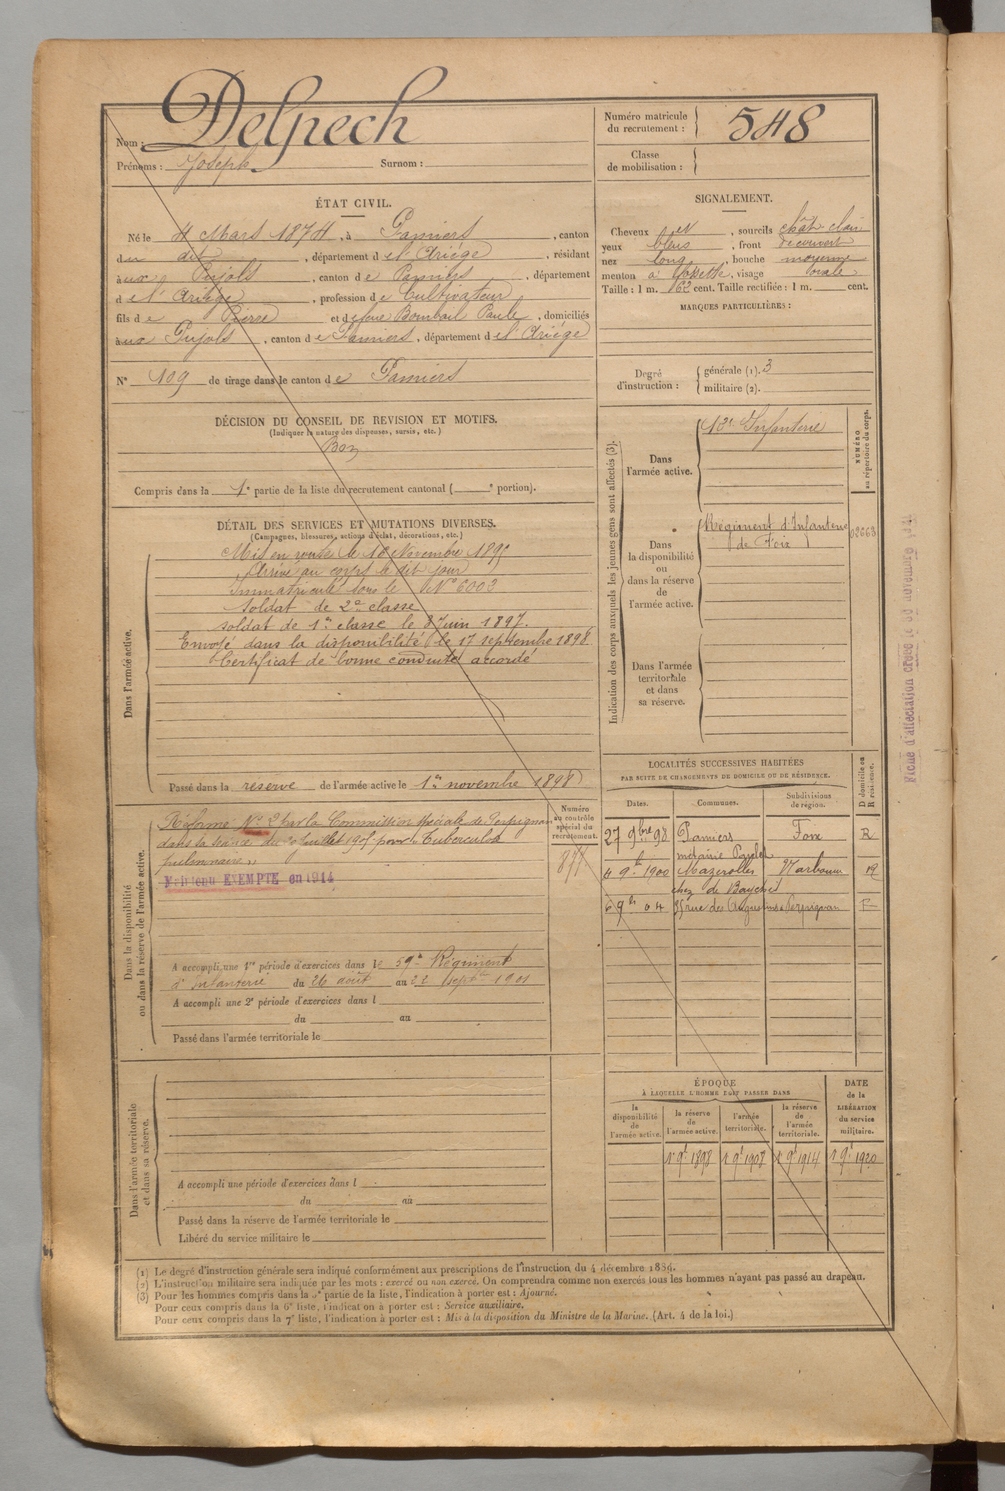 Nom : Delpech
Prénoms : Joseph Surnom :
Numéro matricule du recrutement : 548
Classe de mobilisation :
ÉTAT CIVIL.
Né le 4 Mars 1874, à Pamiers, canton
du dit, département de l'Ariège, résidant
aux Pujols, canton de Pamiers, département
de l'Ariège, profession de Cultivateur
fils de Pierre et de feue Bombail Paule, domiciliés
aux Pujols, canton de Pamiers, département de l'Ariège
N° 109 de tirage dans le canton de Pamiers
SIGNALEMENT.
Cheveux et, sourcils chât clair
yeux bleus, front découvert
nez long, bouche moyenne
menton à fossette, visage ovale
Taille : 1 m. 62 cent. Taille rectifiée : 1 m. cent.
MARQUES PARTICULIÈRES :
Degré d'instruction : générale (1). 3
militaire (2).
DÉCISION DU CONSEIL DE REVISION ET MOTIFS.
(Indiquer la nature des dispenses, sursis, etc.)
Bon
Compris dans la 1e partie de la liste du recrutement cantonal ( e portion).
DÉTAIL DES SERVICES ET MUTATIONS DIVERSES.
(Campagnes, blessures, actions d'éclat, décorations, etc.)
Dans l'armée active.
Mis en route le 16 Novembre 1895
Arrivé au corps le dit jour
Immatriculé sous le N° 6003
soldat de 2e classe
soldat de 1re classe le 3 Juin 1897.
Envoyé dans la disponibilité le 17 septembre 1898
Certificat de bonne conduite accordé
Passé dans la réserve de l'armée active le 1er novembre 1898
Indication des corps auxquels les jeunes gens sont affectés (3).
NUMÉRO au répertoire du corps.
Dans l'armée active.
12e Infanterie
Dans la disponibilité ou dans la réserve de l'armée active.
Régiment d'Infanterie
de Foix
02663
Dans l'armée territoriale et dans sa réserve.
Fiche d'affectation créée le 30 novembre
LOCALITÉS SUCCESSIVES HABITÉES
PAR SUITE DE CHANGEMENTS DE DOMICILE OU DE RÉSIDENCE.
Dates. Communes. Subdivisions de région. D domicile ou R résidence.
27 9bre 98 Pamiers Foix R
métairie
4 9bre 1900 Mazerolles Narbonne
chez de
6 9bre 04 rue des Augustins Perpignan
Dans la disponibilité ou dans la réserve de l'armée active.
Numéro au contrôle spécial du recrutement.
Réformé N° 2 par la Commission spéciale de Perpignan
dans sa séance du juillet 1905 pour Tuberculose
pulmonaire,,
Maintenu EXEMPTE en 1914
A accompli une 1re période d'exercices dans le 59e Régiment
d'infanterie du 26 août au 22 septbre 1901
A accompli une 2e période d'exercices dans l
du au
Passé dans l'armée territoriale le
Dans l'armée territoriale et dans sa réserve.
A accompli une période d'exercices dans l
du au
Passé dans la réserve de l'armée territoriale le
Libéré du service militaire le
ÉPOQUE
À LAQUELLE L'HOMME DOIT PASSER DANS
DATE de la LIBÉRATION du service militaire.
la disponibilité de l'armée active. la réserve de l'armée active. l'armée territoriale. la réserve de l'armée territoriale.
1 9e 1898 1 9e 1908 1 9e 1914 1 9e 1920
(1) Le degré d'instruction générale sera indiqué conformément aux prescriptions de l'instruction du 4 décembre 1889.
(2) L'instruction militaire sera indiquée par les mots : exercé ou non exercé. On comprendra comme non exercés tous les hommes n'ayant pas passé au drapeau.
(3) Pour les hommes compris dans la 5e partie de la liste, l'indication à porter est : Ajourné.
Pour ceux compris dans la 6e liste, l'indication à porter est : Service auxiliaire.
Pour ceux compris dans la 7e liste, l'indication à porter est : Mis à la disposition du Ministre de la Marine. (Art. 4 de la loi.)